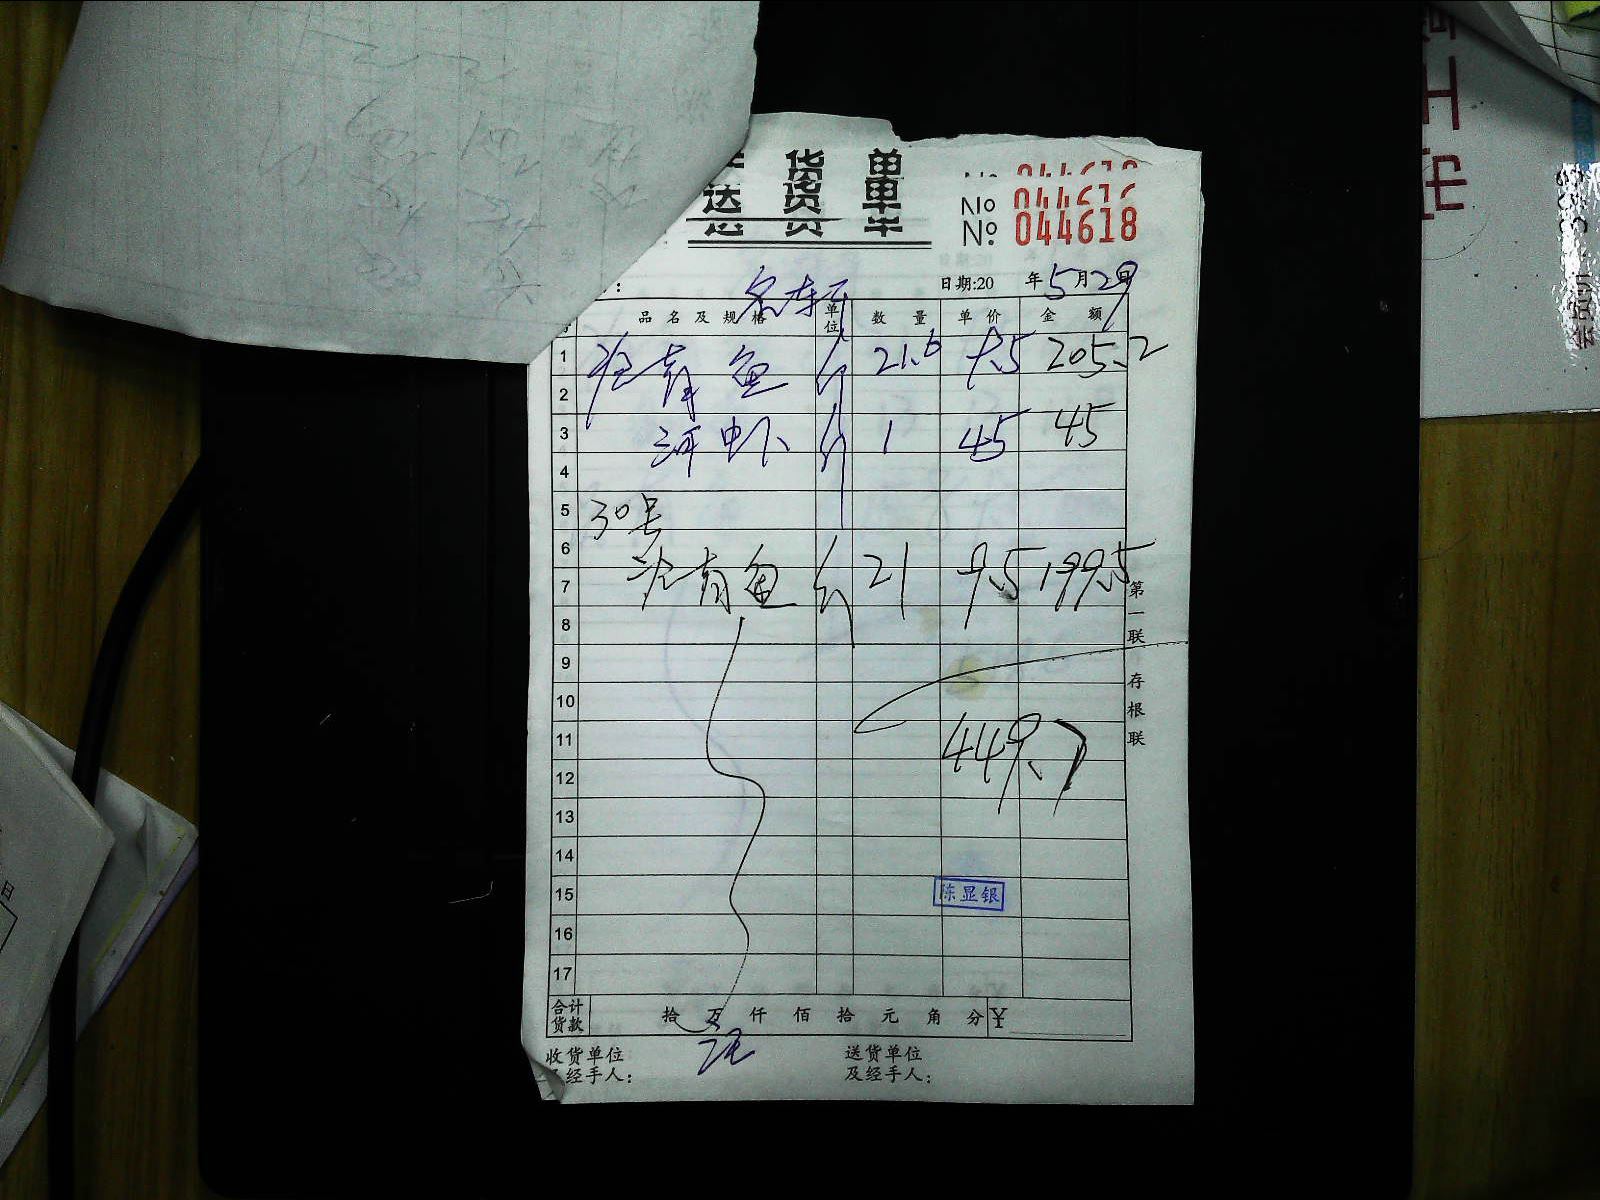 货 单
送 货 单
No 044616
No 044618
日期:20 年5月29日
品 名 及 规 格 单位 数 量 单 价 金 额
1 青鱼 斤 21.6 9.5 205.2
2
3 河虾 斤 1 45 45
4
5 30号
6
7 青鱼 斤 21 9.5 199.5
8
9
10
11 449.7
12
13
14
15 陈显银
16
17
合计货款 拾 万 仟 佰 拾 元 角 分 ¥
收货单位 送货单位
及经手人: 及经手人:
第一联 存根联